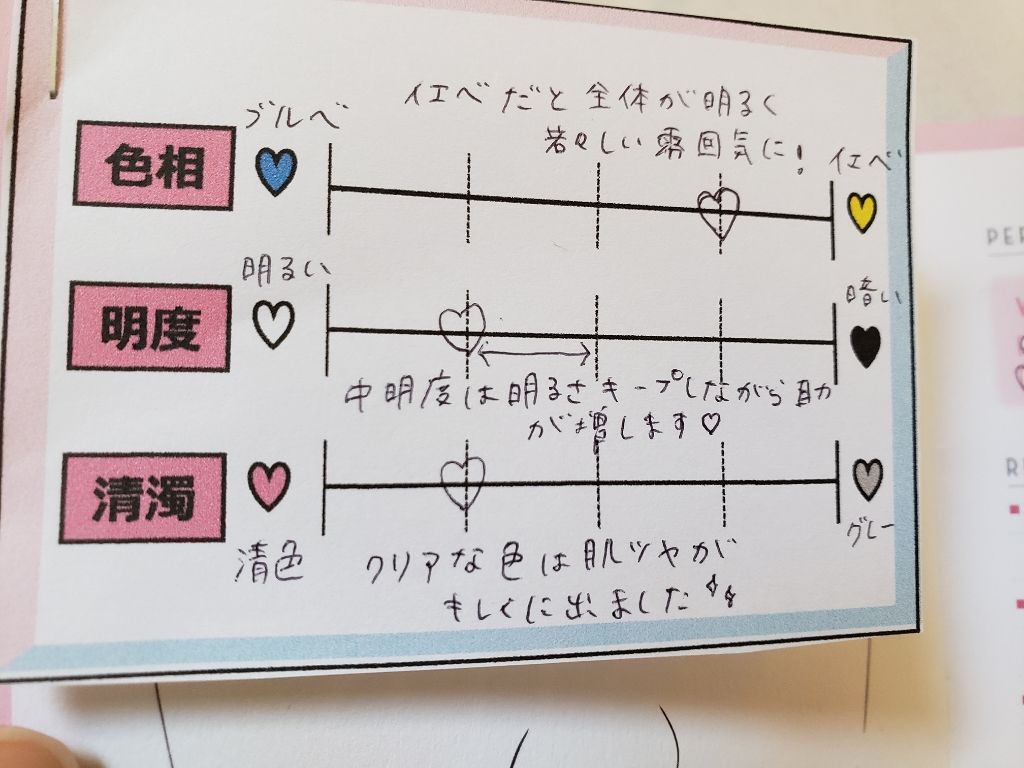 イエベだと全体が明るく
若々しい雰囲気に!
色相
ブルベ
イエベ
明度
明るい
暗い
中明度は明るさキープしながら目力
が増します♡
清濁
清色
グレー
クリアな色は肌ツヤが
キレイに出ました
PER